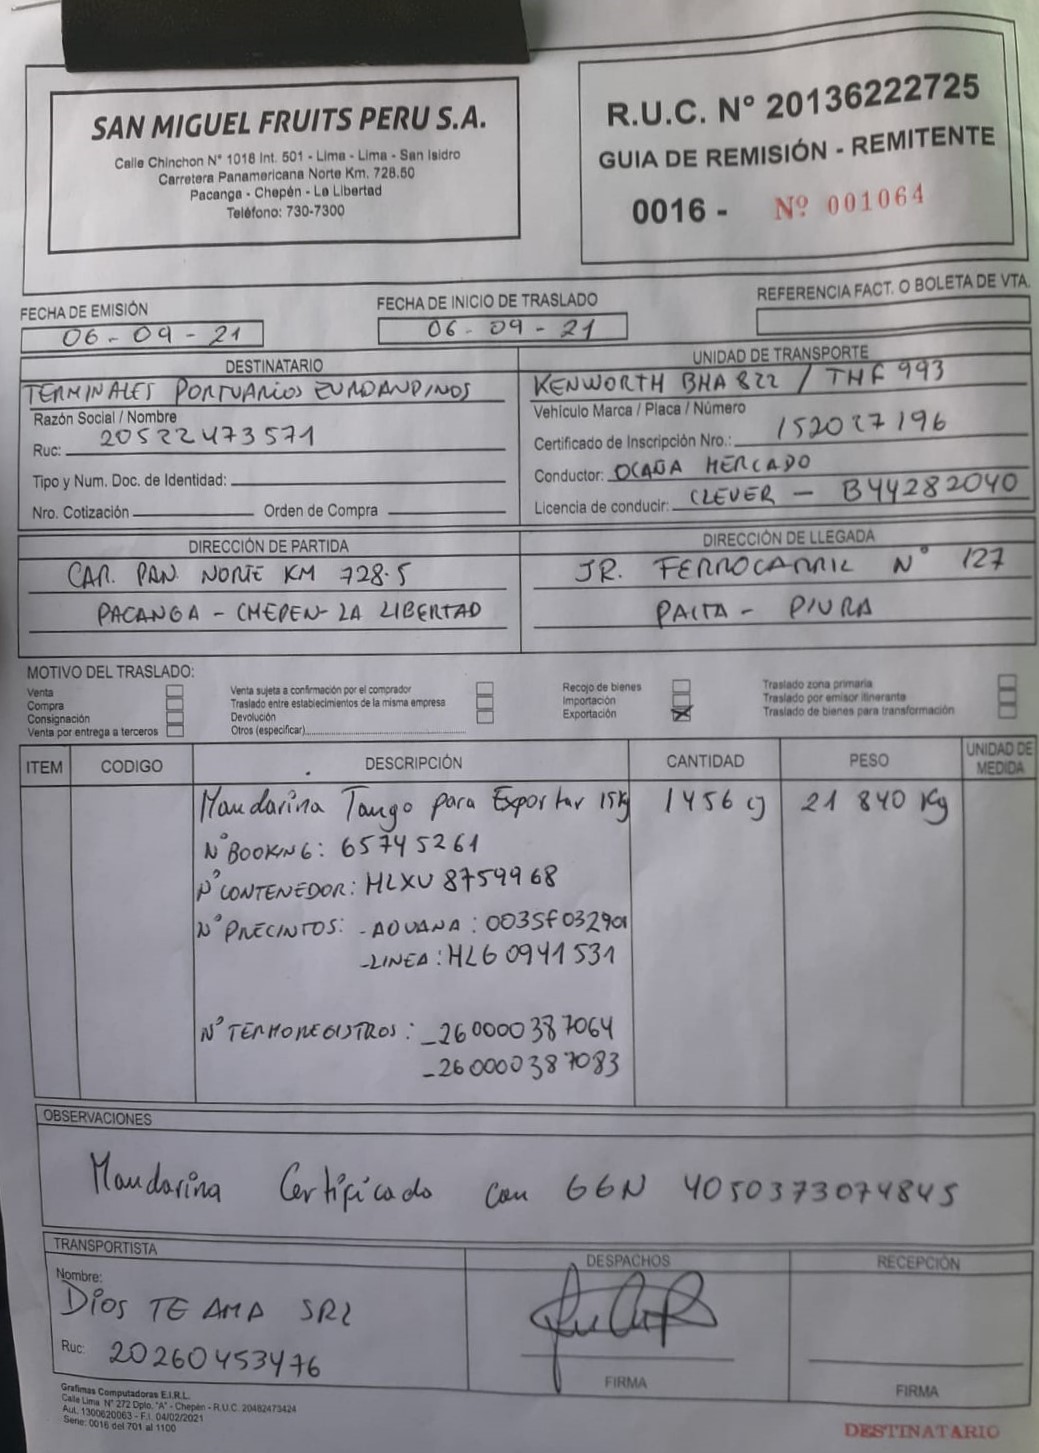 SAN MIGUEL FRUITS PERU S.A.
Calle Chinchon N° 1018 Int. 501 - Lima - Lima - San Isidro
Carretera Panamericana Norte Km. 728.50
Pacanga - Chepén - La Libertad
Teléfono: 730-7300
R.U.C. N° 20136222725
GUIA DE REMISIÓN - REMITENTE
0016 - Nº 001064
FECHA DE EMISIÓN
06-09-21
FECHA DE INICIO DE TRASLADO
06-09-21
REFERENCIA FACT. O BOLETA DE VTA.
DESTINATARIO
TERMINALES PORTUARIOS EUROANDINOS
Razón Social / Nombre
Ruc: 20522473571
Tipo y Num. Doc. de Identidad:
Nro. Cotización Orden de Compra
UNIDAD DE TRANSPORTE
KENWORTH BHA 822 / THF 993
Vehículo Marca / Placa / Número
Certificado de Inscripción Nro.: 152027196
Conductor: OCAÑA MERCADO
Licencia de conducir: CLEVER - B44282040
DIRECCIÓN DE PARTIDA
CAR. PAN. NORTE KM 728.5
PACANGA - CHEPEN - LA LIBERTAD
DIRECCIÓN DE LLEGADA
JR. FERROCARRIL N° 127
PAITA - PIURA
MOTIVO DEL TRASLADO:
Venta
Compra
Consignación
Venta por entrega a terceros
Venta sujeta a confirmación por el comprador
Traslado entre establecimientos de la misma empresa
Devolución
Otros (especificar)
Recojo de bienes
Importación
Exportación X
Traslado zona primaria
Traslado por emisor itinerante
Traslado de bienes para transformación
ITEM CODIGO DESCRIPCIÓN CANTIDAD PESO UNIDAD DE MEDIDA
Mandarina Tango para Exportar 15Kg 1456 cj 21 840 Kg
N° BOOKING: 65745261
N° CONTENEDOR: HLXU 8759968
N° PRECINTOS: - ADUANA: 003SF032901
- LINEA: HLG 0941531
N° TERMOREGISTROS: - 260000387064
- 260000387083
OBSERVACIONES
Mandarina Certificado con GGN 4050373074845
TRANSPORTISTA
Nombre:
DIOS TE AMA SRL
Ruc: 20260453476
DESPACHOS
FIRMA
RECEPCIÓN
FIRMA
Grafimas Computadoras E.I.R.L.
Calle Lima N° 272 Dpto. "A" - Chepén - R.U.C. 20482473424
Aut. 1300620063 - F.I. 04/02/2021
Serie: 0016 del 701 al 1100
DESTINATARIO